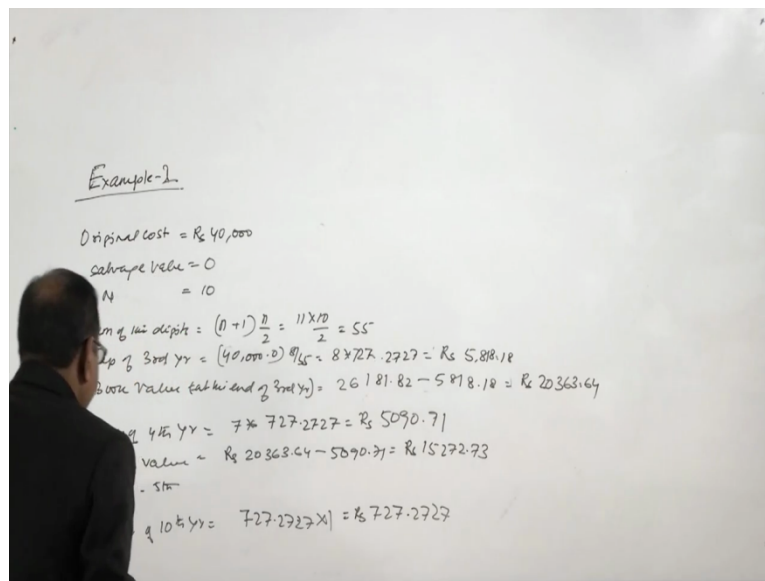 Example-1
Original cost = Rs 40,000
Salvage Value = 0
N = 10
of the digits = (n+1) n/2 = 11×10/2 = 55
of 3rd yr = (40,000-0) 8/55 = 8×727.2727 = Rs 5,818.18
Book Value (at the end of 3rd yr) = 26181.82 - 5818.18 = Rs 20363.64
4th yr = 7× 727.2727 = Rs 5090.71
value = Rs 20363.64 - 5090.71 = Rs 15272.73
5th
of 10th yr = 727.2727×1 = Rs 727.2727